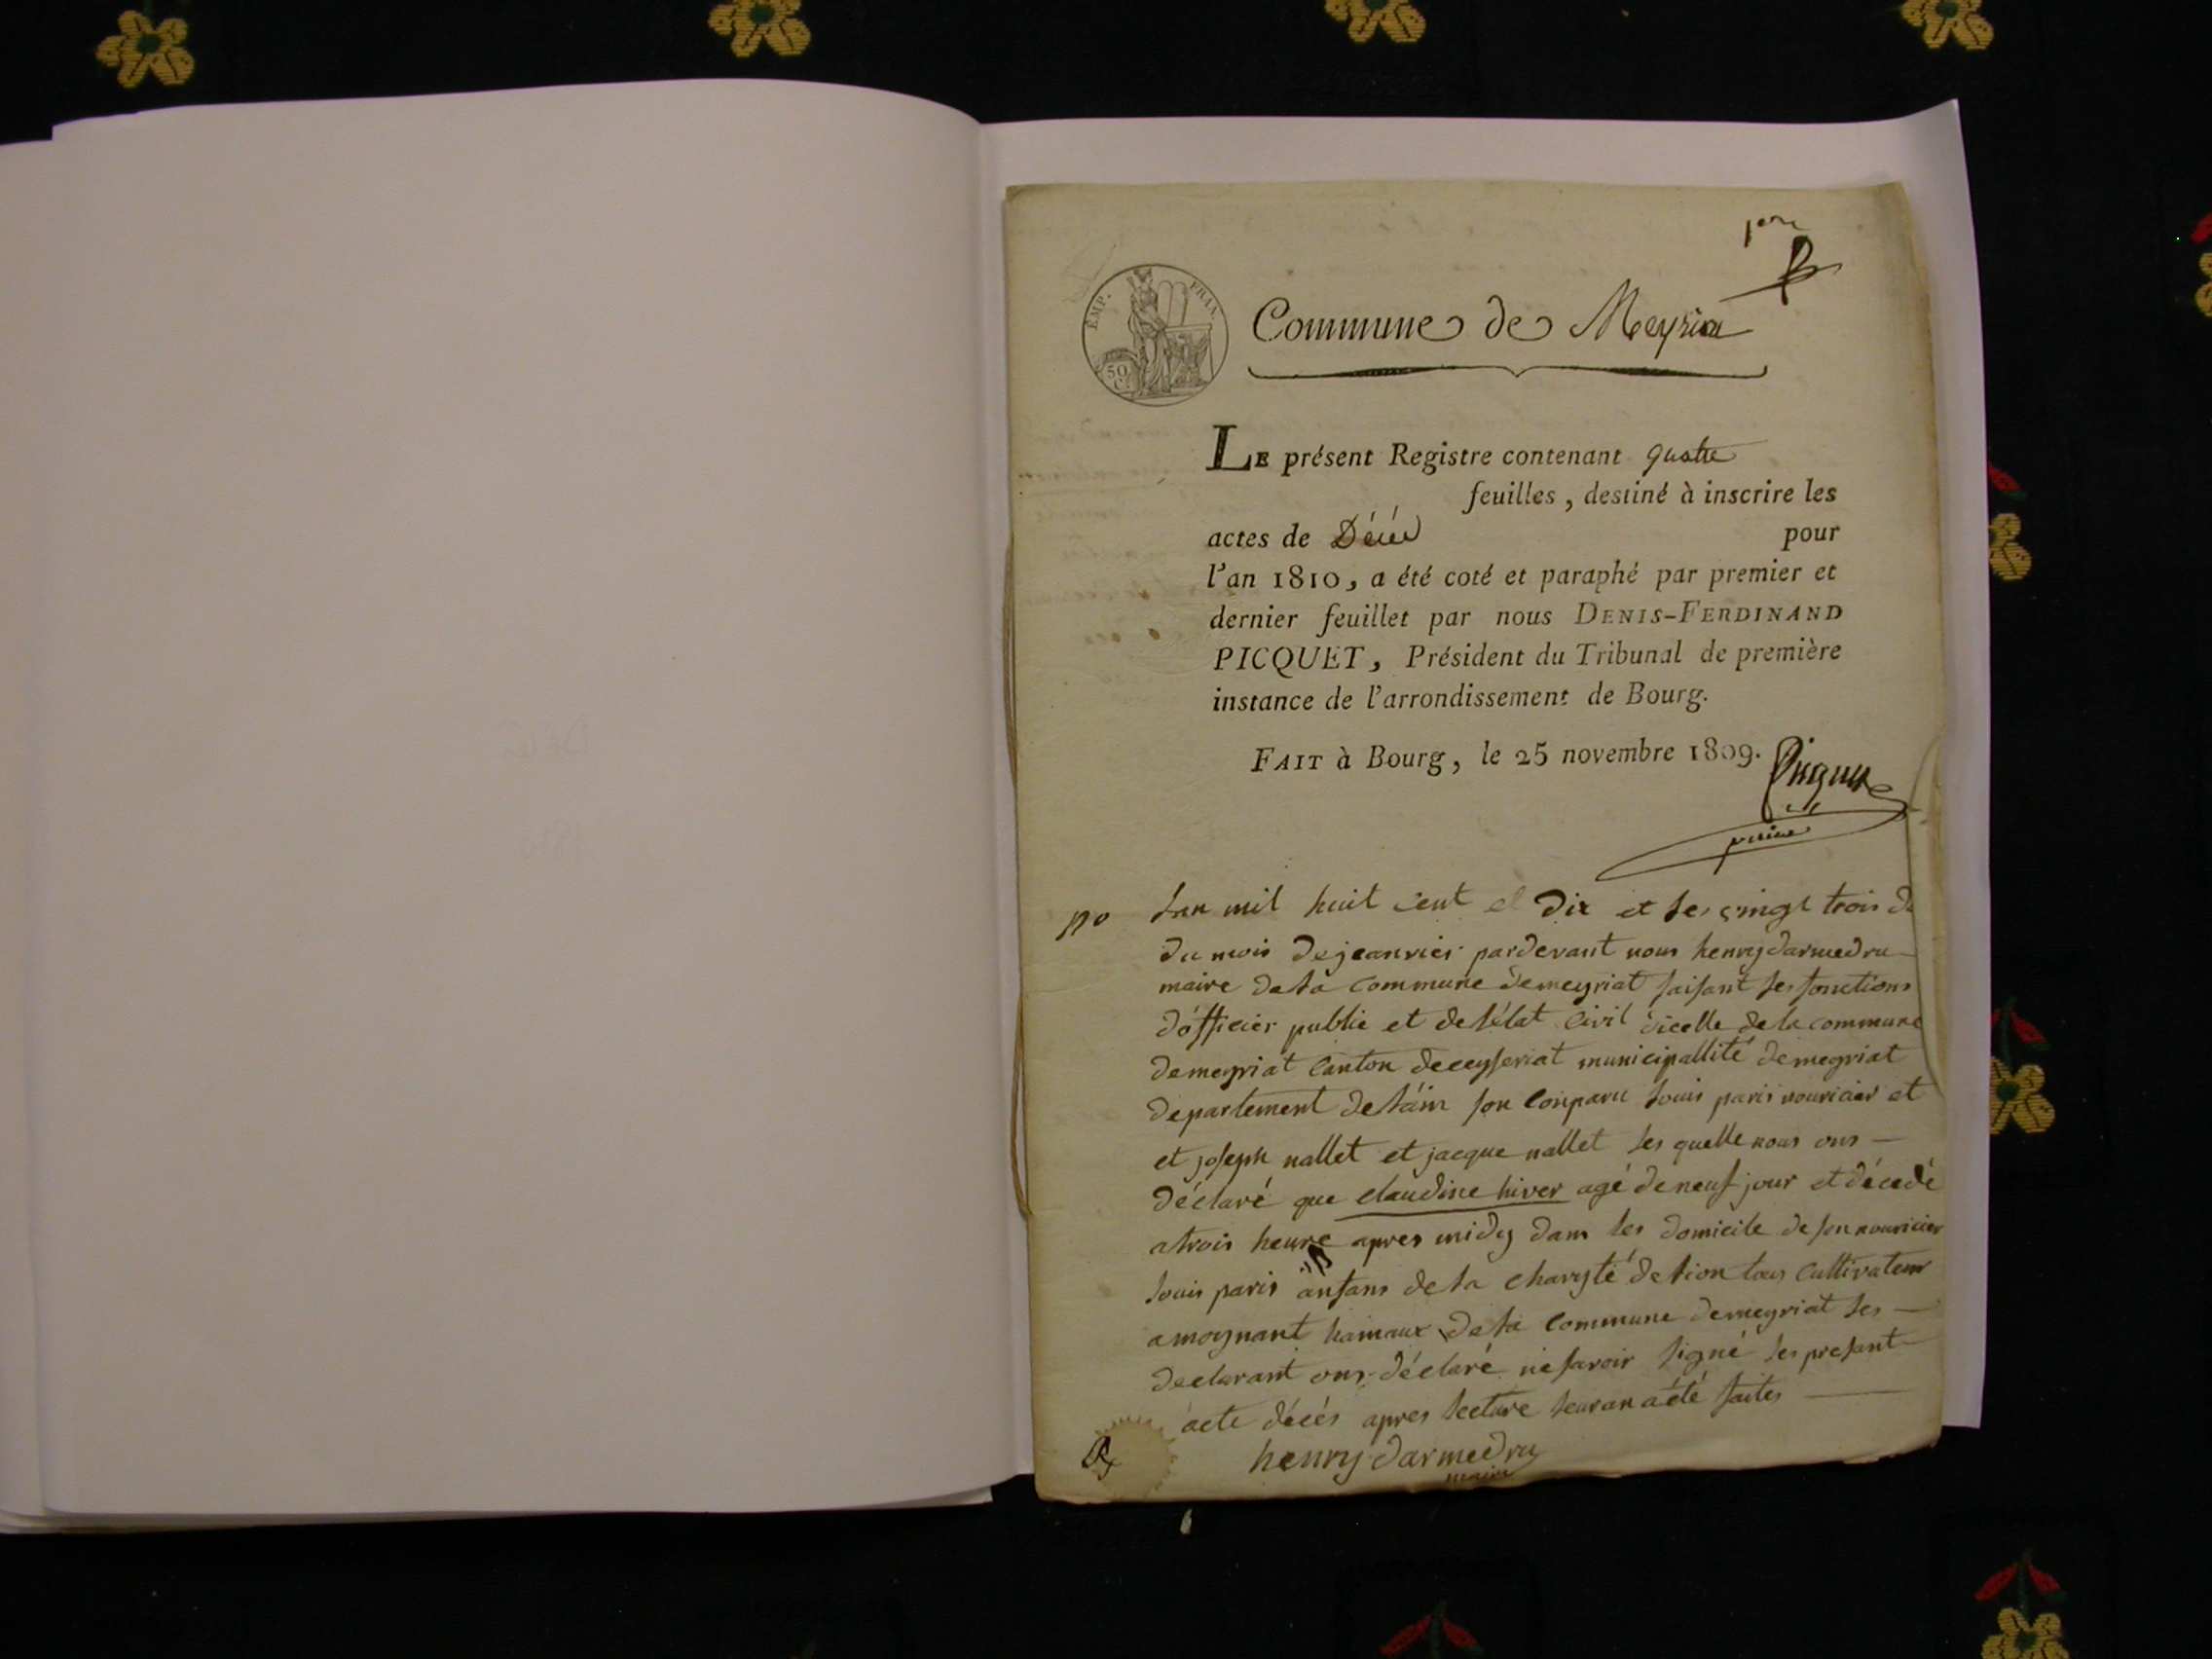 1er
EMP. FRAN.
50 C.
Commune de Meyriat
LE présent Registre contenant quatre
feuilles, destiné à inscrire les
actes de Décès pour
l'an 1810, a été coté et paraphé par premier et
dernier feuillet par nous DENIS-FERDINAND
PICQUET, Président du Tribunal de première
instance de l'arrondissement de Bourg.
FAIT à Bourg, le 25 novembre 1809.
Picquet
lan mil huit cent et dix et les vingt trois
du mois de jeanvier pardevant nous henry darmedru
maire de la Commune de meyriat faisant les fonctions
d'officier public et de l'état Civil dicelle de la commune
de meyriat Canton de ceyseriat municipallité de meyriat
departement de l'ain son Conparu louis paris nouricier et
et joseph nallet et jacque nallet les quelle nous ons
déclaré que claudine hiver agé de neuf jour et décedé
a trois heure apres midy dans les domicile de son nouricier
louis paris anfans de la charyté de lion tous Cultivateur
a moynant hamaux de la Commune de meyriat les
declarant ons déclaré ne savoir signé les presant
acte décés apres lecture leur an a été faites
henry darmedru
maire